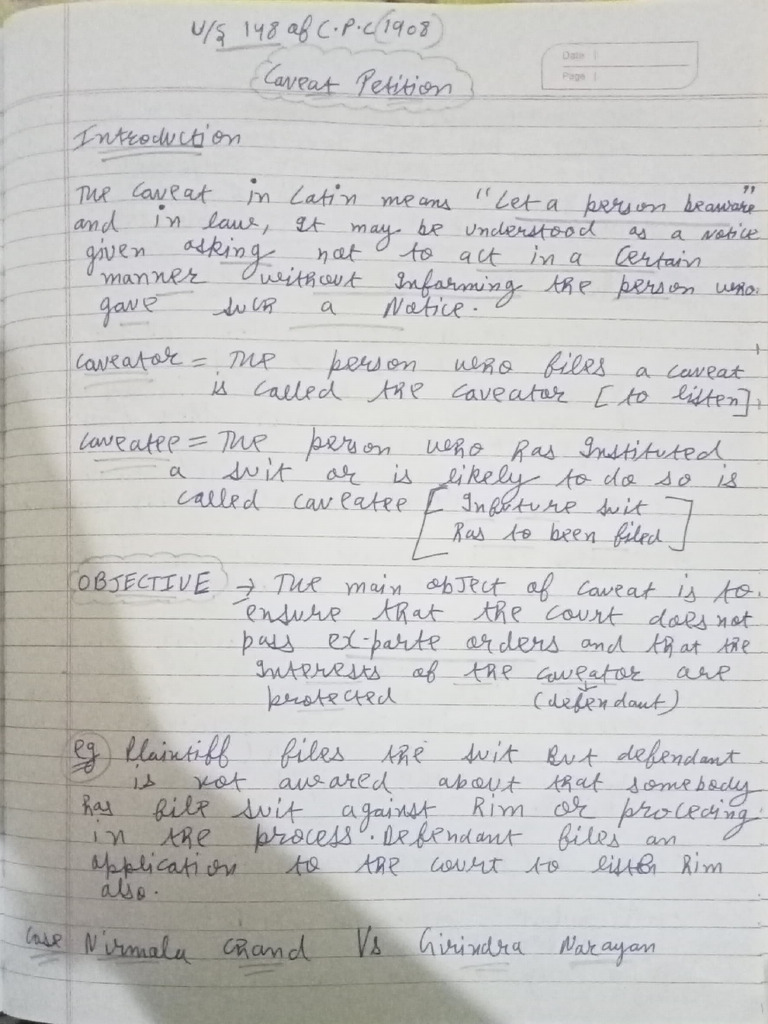 U/S 148 of C.P.C (1908)
Date
Page
Caveat Petition
Introduction
The caveat in Latin means "Let a person beaware"
and in law, It may be understood as a Notice
given asking not to act in a Certain
manner without Informing the person who
gave such a Notice.
caveator = The person who files a caveat
is called the caveator [to listen]
caveatee = The person who has Instituted
a suit or is likely to do so is
called caveatee [Infuture suit
has to been filed]
OBJECTIVE → The main object of caveat is to
ensure that the court does not
pass ex-parte orders and that the
Interests of the caveator are
protected (defendant)
eg Plaintiff files the suit But defendant
is not awared about that somebody
has file suit against him or proceding
in the process. Defendant files an
application to the court to listen him
also.
Case Nirmala Chand Vs Girindra Narayan